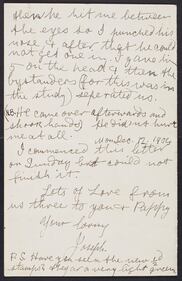 then he hit me between
the eyes so I punched his
nose & after that he could
not get one in. I gave him
5 on the head & then the
bystanders (for this was in
the study) seperated us.
He came over afterwards and
shook hands) He did not hurt
me at all. Mon Dec. 12. 1904
I commenced this letter
on Sunday but could not
finish it.
Lots of Love from
us three to you & Pappy
Your loving
Joseph.
P.S. Have you seen the new ½d
stamps? they are a very light green